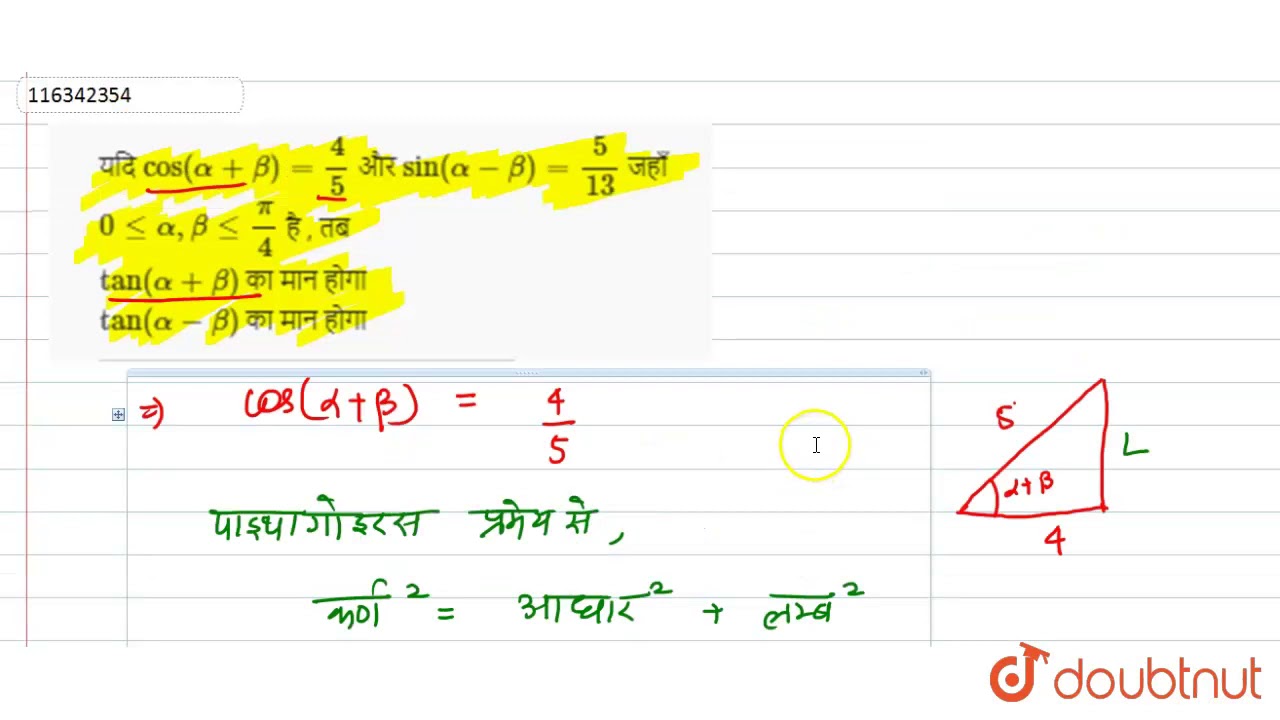 116342354
यदि cos(α + β) = 4/5 और sin(α − β) = 5/13 जहाँ
0 ≤ α, β ≤ π/4 है , तब
tan(α + β) का मान होगा
tan(α − β) का मान होगा
⇒) cos(α+β) = 4/5
5
L
α+β
4
पाइथागोइरस प्रमेय से,
कर्ण² = आधार² + लम्ब²
doubtnut